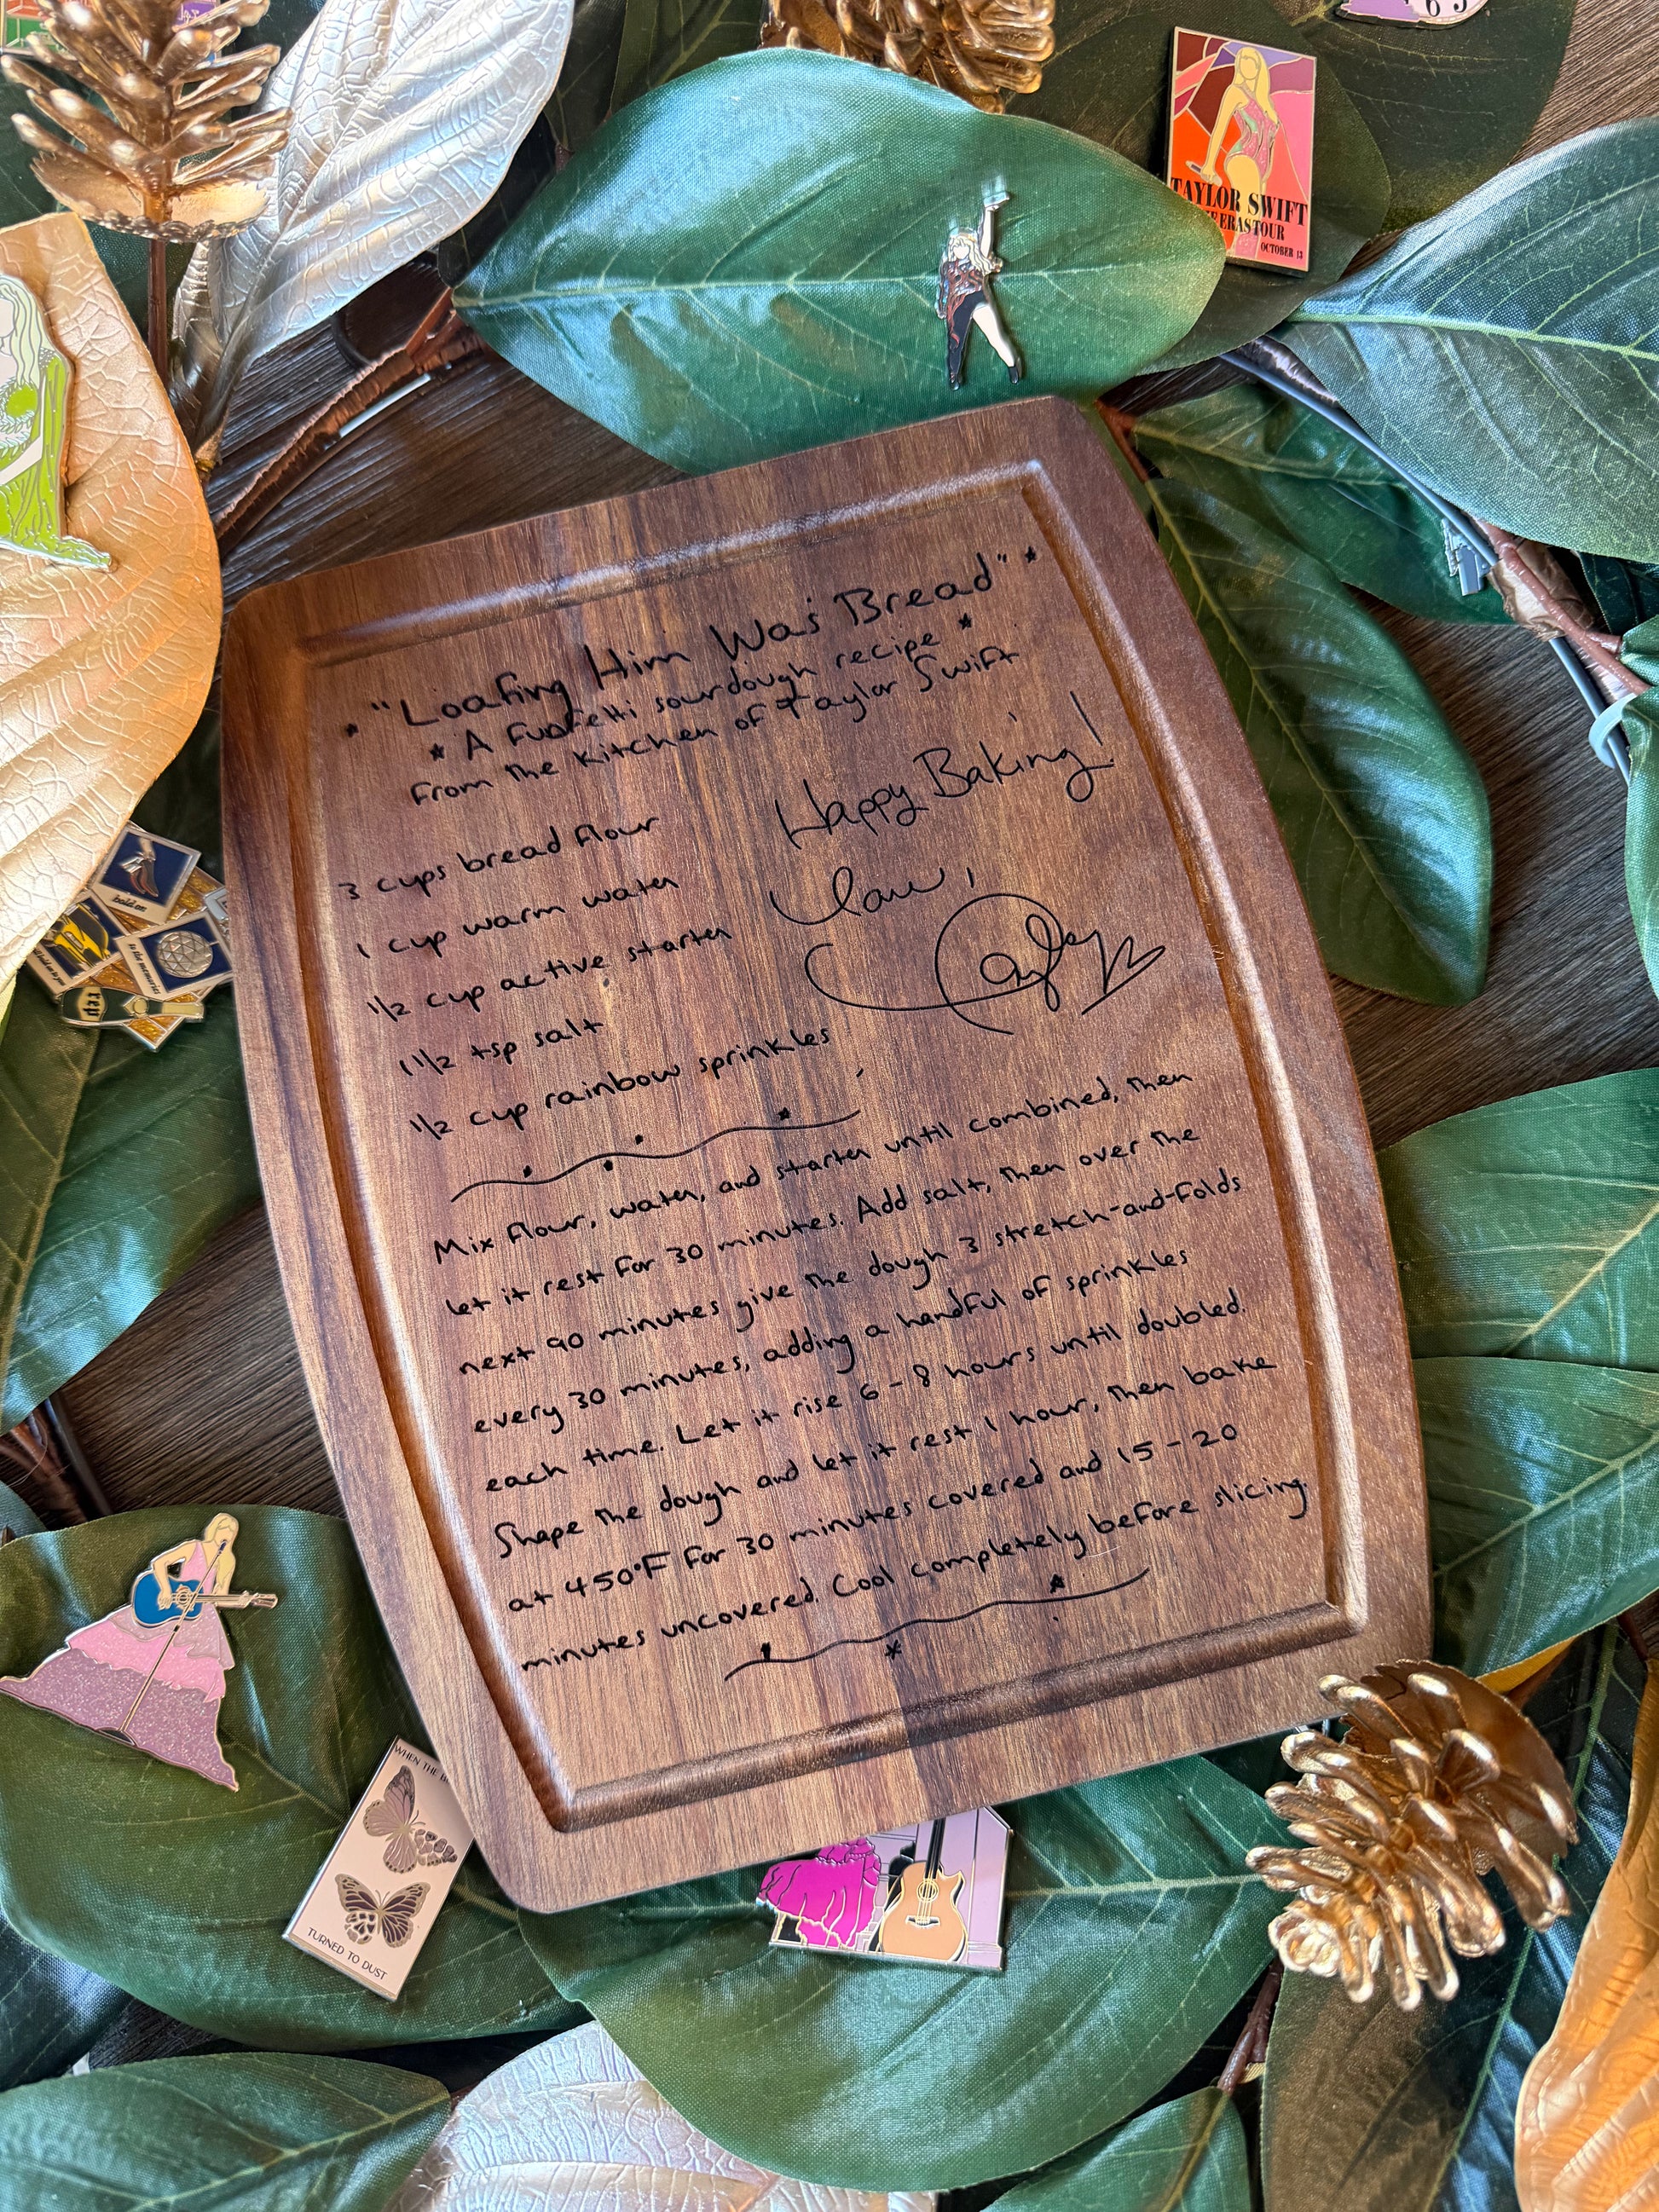 TAYLOR SWIFT
ERAS TOUR
OCTOBER 13
* "Loafing Him Was Bread" *
* A funfetti sourdough recipe *
from the kitchen of Taylor Swift
Happy Baking!
Love,
Taylor
3 cups bread flour
1 cup warm water
1/2 cup active starter
1 1/2 tsp salt
1/2 cup rainbow sprinkles
Mix flour, water, and starter until combined, then
let it rest for 30 minutes. Add salt, then over the
next 90 minutes give the dough 3 stretch-and-folds
every 30 minutes, adding a handful of sprinkles
each time. Let it rise 6-8 hours until doubled.
Shape the dough and let it rest 1 hour, then bake
at 450°F for 30 minutes covered and 15-20
minutes uncovered. Cool completely before slicing.
hold on
to the memories
rep
WHEN THE
TURNED TO DUST